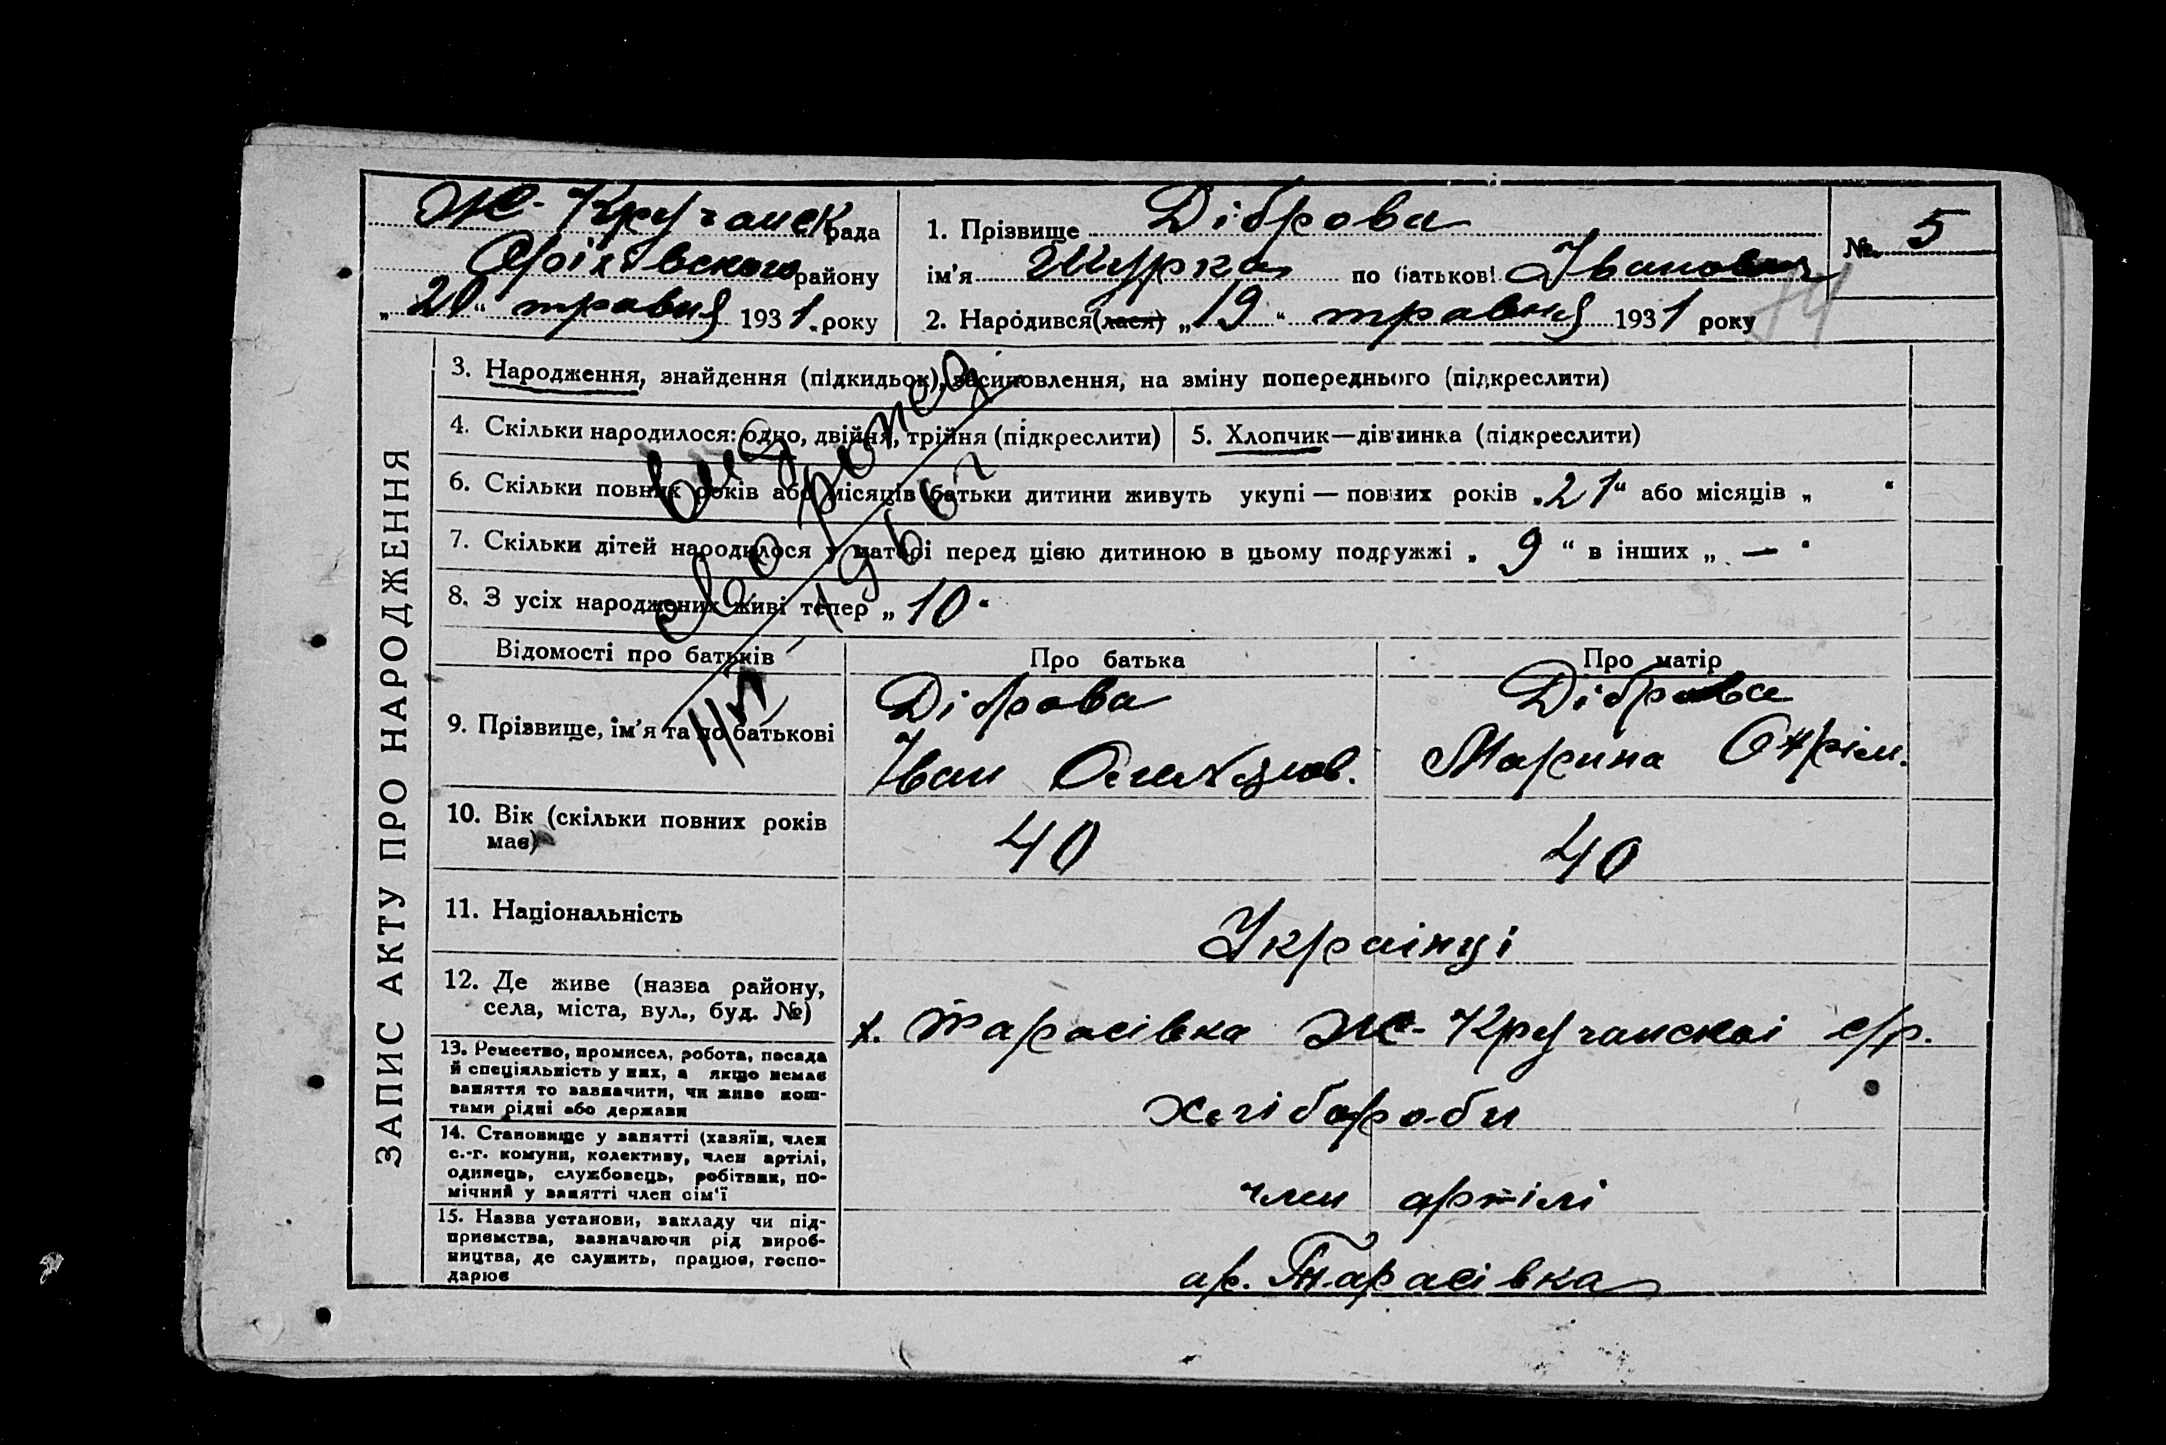 Ж-Кручанськ рада
Оріхівського району
„20“ травня 1931 року
1. Прізвище Діброва
ім'я Шурка по батькові Іванович
2. Народився (лася) „19“ травня 1931 року
№ 5
74
ЗАПИС АКТУ ПРО НАРОДЖЕННЯ
3. Народження, знайдення (підкидьок), засиновлення, на зміну попереднього (підкреслити)
4. Скільки народилося: одно, двійня, трійня (підкреслити)
5. Хлопчик—дівчинка (підкреслити)
6. Скільки повних років або місяців батьки дитини живуть укупі — повних років „21“ або місяців „ “
7. Скільки дітей народилося у матері перед цією дитиною в цьому подружжі „9“ в інших „—“
8. З усіх народжених живі тепер „10“
Відомості про батьків
Про батька
Про матір
9. Прізвище, ім'я та по батькові
Діброва
Іван
Діброва
Марина Охрім.
10. Вік (скільки повних років має)
40
40
11. Національність
Українці
12. Де живе (назва району,
села, міста, вул., буд. №)
х. Тарасівка Ж-Кручанскоі с/р.
13. Ремество, промисел, робота, посада
й спеціяльність у них, а якщо немає
заняття то зазначити, чи живе кош-
тами рідні або держави
хлібороби
14. Становище у занятті (хазяїн, член
с.-г. комуни, колективу, член артілі,
одинець, службовець, робітник, по-
мічний у занятті член сім'ї
член артілі
15. Назва установи, закладу чи під-
приємства, зазначаючи рід вироб-
ництва, де служить, працює, госпо-
дарює
ар. Тарасівка